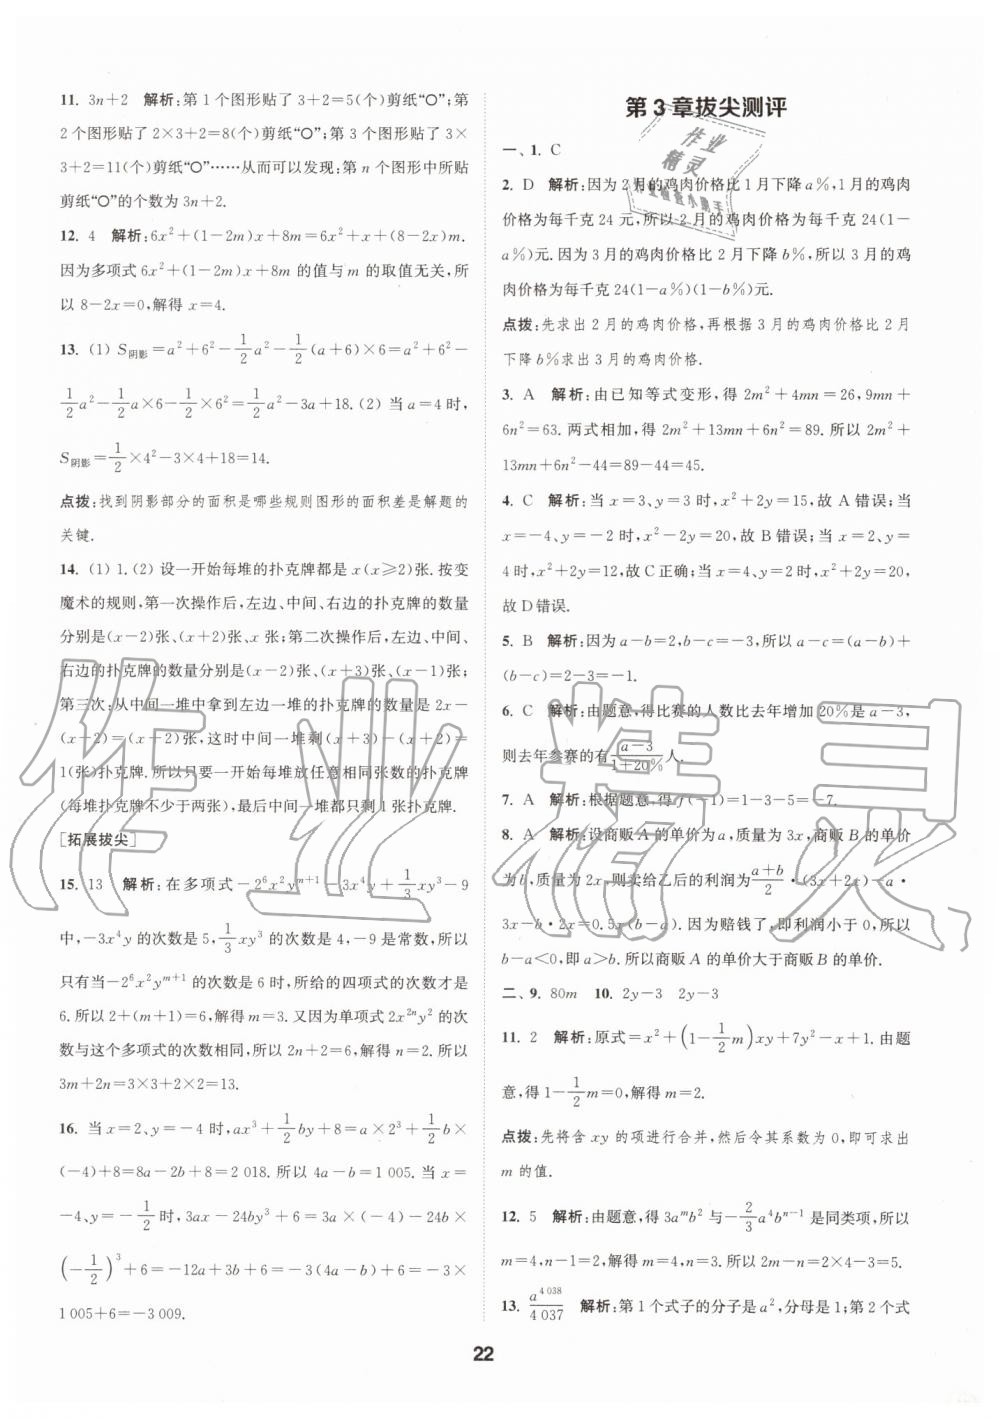 11. 3n+2 解析:第1个图形贴了3+2=5(个)剪纸“O”;第
2个图形贴了2×3+2=8(个)剪纸“O”;第3个图形贴了3×
3+2=11(个)剪纸“O”……从而可以发现:第n个图形中所贴
剪纸“O”的个数为3n+2.
12. 4 解析:6x²+(1-2m)x+8m=6x²+x+(8-2x)m.
因为多项式6x²+(1-2m)x+8m的值与m的取值无关,所
以8-2x=0,解得x=4.
13. (1) S阴影=a²+6²-1/2a²-1/2(a+6)×6=a²+6²-
1/2a²-1/2a×6-1/2×6²=1/2a²-3a+18.(2) 当a=4时,
S阴影=1/2×4²-3×4+18=14.
点拨:找到阴影部分的面积是哪些规则图形的面积差是解题的
关键.
14. (1) 1.(2) 设一开始每堆的扑克牌都是x(x≥2)张.按变
魔术的规则,第一次操作后,左边、中间、右边的扑克牌的数量
分别是(x-2)张、(x+2)张、x张;第二次操作后,左边、中间、
右边的扑克牌的数量分别是(x-2)张、(x+3)张、(x-1)张;
第三次:从中间一堆中拿到左边的扑克牌的数量是2x-
(x-2)=(x+2)张,这时中间一堆剩(x+3)-(x+2)=
1(张)扑克牌.所以只要一开始每堆放任意相同张数的扑克牌
(每堆扑克牌不少于两张),最后中间一堆都只剩1张扑克牌.
[拓展拔尖]
15. 13 解析:在多项式-2⁶x²yᵐ⁺¹-3x⁴y+1/3xy³-9
中,-3x⁴y的次数是5,1/3xy³的次数是4,-9是常数,所以
只有当-2⁶x²yᵐ⁺¹的次数是6时,所给的四项式的次数才是
6.所以2+(m+1)=6,解得m=3.又因为单项式2x²ⁿy²的次
数与这个多项式的次数相同,所以2n+2=6,解得n=2.所以
3m+2n=3×3+2×2=13.
16. 当x=2、y=-4时,ax³+1/2by+8=a×2³+1/2b×
(-4)+8=8a-2b+8=2 018.所以4a-b=1 005.当x=
-4、y=-1/2时,3ax-24by³+6=3a×(-4)-24b×
(-1/2)³+6=-12a+3b+6=-3(4a-b)+6=-3×
1 005+6=-3 009.
第3章拔尖测评
一、1. C
2. D 解析:因为2月的鸡肉价格比1月下降a%,1月的鸡肉
价格为每千克24元,所以2月的鸡肉价格为每千克24(1-
a%)元.因为3月的鸡肉价格比2月下降b%,所以3月的鸡
肉价格为每千克24(1-a%)(1-b%)元.
点拨:先求出2月的鸡肉价格,再根据3月的鸡肉价格比2月
下降b%求出3月的鸡肉价格.
3. A 解析:由已知等式变形,得2m²+4mn=26,9mn+
6n²=63.两式相加,得2m²+13mn+6n²=89.所以2m²+
13mn+6n²-44=89-44=45.
4. C 解析:当x=3、y=3时,x²+2y=15,故A错误;当
x=-4、y=-2时,x²-2y=20,故B错误;当x=2、y=
4时,x²+2y=12,故C正确;当x=4、y=2时,x²+2y=20,
故D错误.
5. B 解析:因为a-b=2,b-c=-3,所以a-c=(a-b)+
(b-c)=2-3=-1.
6. C 解析:由题意,得比赛的人数比去年增加20%是a-3,
则去年参赛的有(a-3)/(1+20%)人.
7. A 解析:根据题意,得f(-1)=1-3-5=-7.
8. A 解析:设商贩A的单价为a,质量为3x,商贩B的单价
为b,质量为2x,则卖给乙后的利润为(a+b)/2·(3x+2x)-a·
3x-b·2x=0.5x(b-a).因为赔钱了,即利润小于0,所以
b-a<0,即a>b.所以商贩A的单价大于商贩B的单价.
二、9. 80m 10. 2y-3 2y-3
11. 2 解析:原式=x²+(1-1/2m)xy+7y²-x+1.由题
意,得1-1/2m=0,解得m=2.
点拨:先将含xy的项进行合并,然后令其系数为0,即可求出
m的值.
12. 5 解析:由题意,得3aᵐb²与-2/3a⁴bⁿ⁻¹是同类项,所以
m=4,n-1=2,解得m=4,n=3.所以2m-n=2×4-3=5.
13. a⁴ ⁰³⁸/4 037 解析:第1个式子的分子是a²,分母是1;第2个式
22
作业
精灵
作业检查小助手
作业精灵